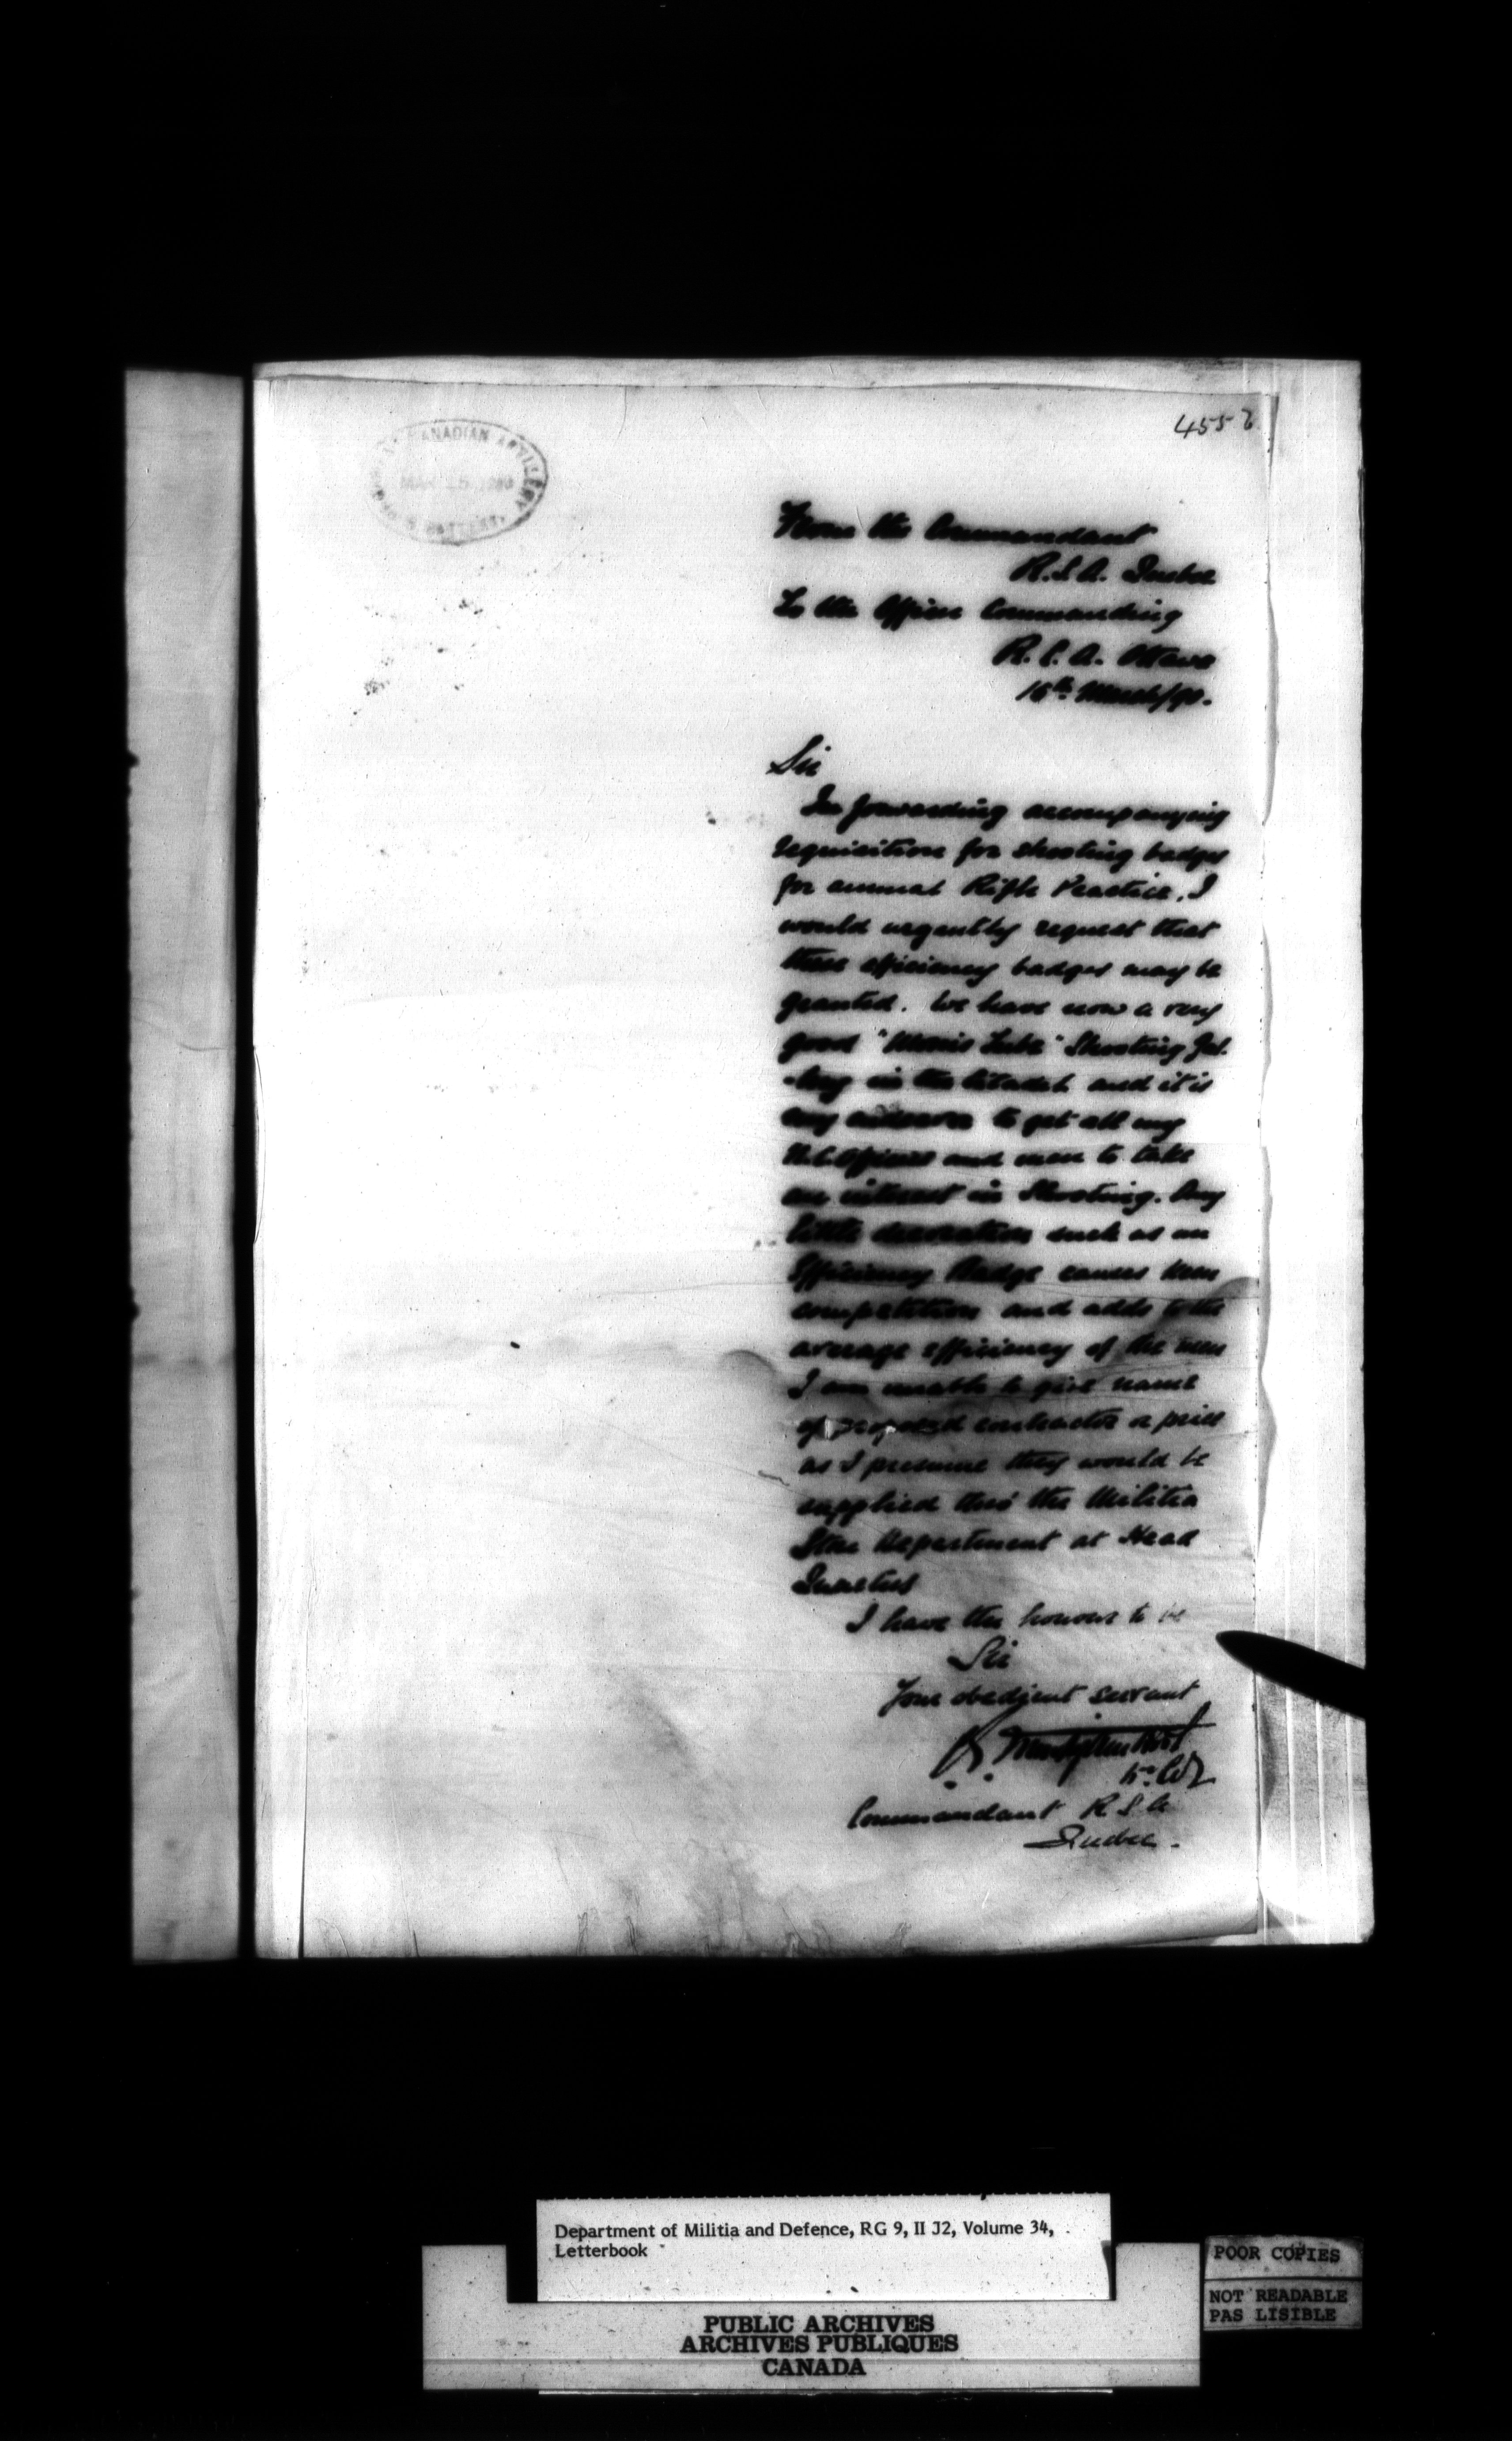 455
CANADIAN ARTILLERY
MAR 15
From the Commandant
R.S.A. Quebec
To the Officer Commanding
R.C.A. Ottawa
15th March/90.
Sir
In forwarding accompanying
requisition for shooting badges
for annual Rifle Practice, I
would urgently request that
these efficiency badges may be
granted. We have now a very
good "Morris Tube" Shooting Gal-
-lery in the Citadel and it is
my endeavour to get all my
N.C. Officers and men to take
an interest in Shooting. Any
little decoration such as an
Efficiency Badge causes keen
competition and adds to the
average efficiency of the men
I am unable to give name
of proposed contractor or price
as I presume they would be
supplied thro' the Militia
Store Department at Head
Quarters
I have the honour to be
Sir
Your obedient servant
Lt. Col
Commandant R S A
Quebec.
Department of Militia and Defence, RG 9, II J2, Volume 34,
Letterbook
POOR COPIES
NOT READABLE
PAS LISIBLE
PUBLIC ARCHIVES
ARCHIVES PUBLIQUES
CANADA